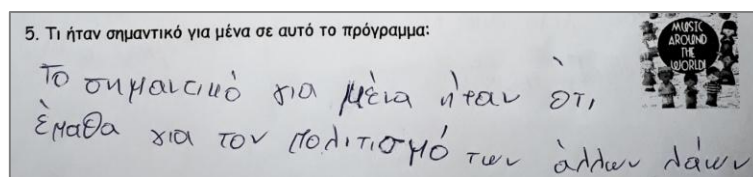 5. Τι ήταν σημαντικό για μένα σε αυτό το πρόγραμμα:
MUSIC
AROUND
THE
WORLD!
Το σημαντικό για μένα ήταν ότι,
έμαθα για τον πολιτισμό των άλλων λάων